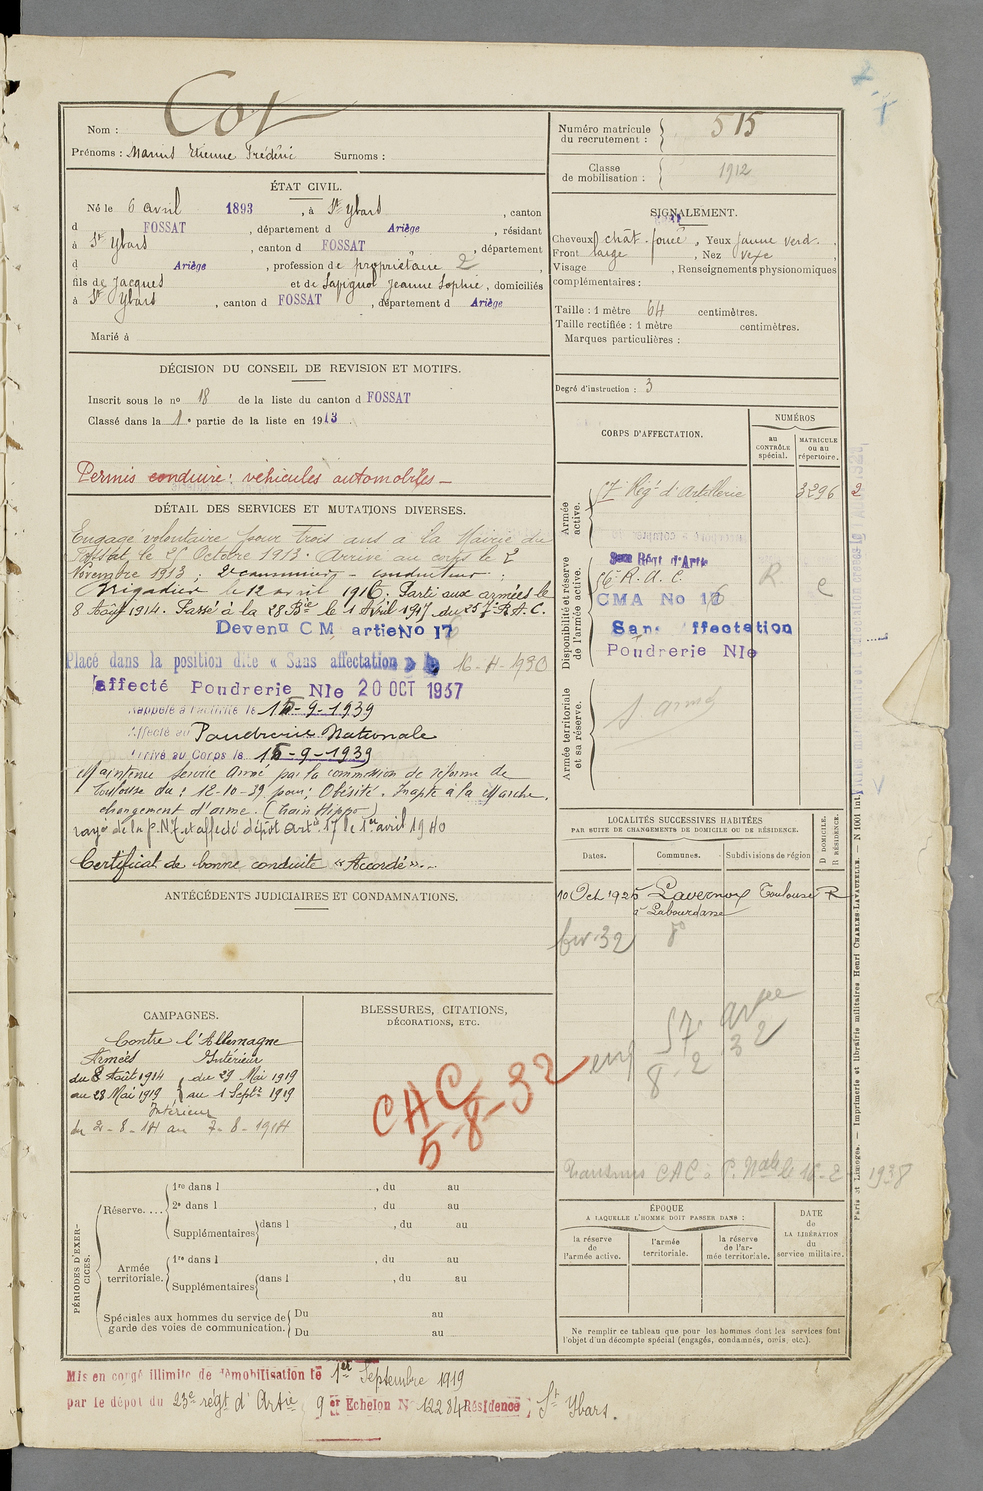 Cot
Nom :
Prénoms : Marius Etienne Frédéric Surnoms :
ÉTAT CIVIL.
Né le 6 avril 1893, à St Ybars, canton
d FOSSAT, département d Ariège, résidant
à St Ybars, canton d FOSSAT, département
d Ariège, profession de propriétaire 2
fils de Jacques et de Sapignol Jeanne Sophie, domiciliés
à St Ybars, canton d FOSSAT, département d Ariège
Marié à
DÉCISION DU CONSEIL DE REVISION ET MOTIFS.
Inscrit sous le no 18 de la liste du canton d FOSSAT
Classé dans la 1e partie de la liste en 1913
Permis conduire : véhicules automobiles —
DÉTAIL DES SERVICES ET MUTATIONS DIVERSES.
Engagé volontaire pour trois ans à la Mairie du
Fossat le 25 Octobre 1913. Arrivé au corps le 2
Novembre 1913 ; 2e canonnier – conducteur ;
Brigadier le 12 avril 1916. Parti aux armées le
8 Août 1914. Passé à la 28 Bie le 1 Avril 1917 du 257 R.A.C.
Devenu C M artie No 17
Placé dans la position dite « Sans affectation » le 16-4-1930
affecté Poudrerie Nle 20 OCT 1937
Rappelé à l'activité le 15-9-1939
Affecté au Poudrerie Nationale
Arrivé au Corps le 15-9-1939
Maintenu service armé par la commission de réforme de
Toulouse du : 12-10-39 pour : Obésité. Inapte à la Marche.
changement d'arme. (train Hippo)
rayé de la P.N.T. et affecté dépôt artie 17 le 1er avril 1940
Certificat de bonne conduite « Accordé ».
ANTÉCÉDENTS JUDICIAIRES ET CONDAMNATIONS.
CAMPAGNES.
Contre l'Allemagne
Armées Intérieur
du 8 Août 1914 du 29 Mai 1919
au 28 Mai 1919 au 1 Septre 1919
Intérieur
du 2-8-14 au 7-8-1914
BLESSURES, CITATIONS,
DÉCORATIONS, ETC.
CAC
5-8-32
PÉRIODES D'EXERCICES.
Réserve....
1re dans l , du au
2e dans l , du au
Supplémentaires dans l , du au
Armée territoriale.
1re dans l , du au
Supplémentaires dans l , du au
Spéciales aux hommes du service de
garde des voies de communication.
Du au
Du au
Mis en congé illimité de démobilisation le 1er Septembre 1919
par le dépôt du 23e régt d'Artie 9 er Echelon No 12284 Résidence ; St Ybars.
Numéro matricule
du recrutement : 515
Classe
de mobilisation : 1912
SIGNALEMENT.
Cheveux chât. foncé, Yeux jaune verd.
Front large, Nez vexe
Visage , Renseignements physionomiques
complémentaires :
Taille : 1 mètre 64 centimètres.
Taille rectifiée : 1 mètre centimètres.
Marques particulières :
Degré d'instruction : 3
CORPS D'AFFECTATION.
NUMÉROS
au CONTRÔLE spécial.
MATRICULE ou au répertoire.
Armée active.
57 Régt d'Artillerie 3296 2
Disponibilité et réserve de l'armée active.
56 R. A. C. R. C
CMA No 16
Sans affectation
Poudrerie Nle
Armée territoriale et sa réserve.
S armé
LOCALITÉS SUCCESSIVES HABITÉES
PAR SUITE DE CHANGEMENTS DE DOMICILE OU DE RÉSIDENCE.
Dates. Communes. Subdivisions de région
D DOMICILE.
R RÉSIDENCE.
10 Oct 1925 Lavernose Toulouse R
à Labourdasse
fév. 32 do
57 artie
8-2 32
Transmis CAC à P. Nale le 16-2 1938
ÉPOQUE
A LAQUELLE L'HOMME DOIT PASSER DANS :
la réserve de l'armée active.
l'armée territoriale.
la réserve de l'armée territoriale.
DATE de LA LIBÉRATION du service militaire.
Ne remplir ce tableau que pour les hommes dont les services font
l'objet d'un décompte spécial (engagés, condamnés, omis, etc.).
Paris et Limoges. — Imprimerie et librairie militaires Henri CHARLES-LAVAUZELLE. — N 1001 int.